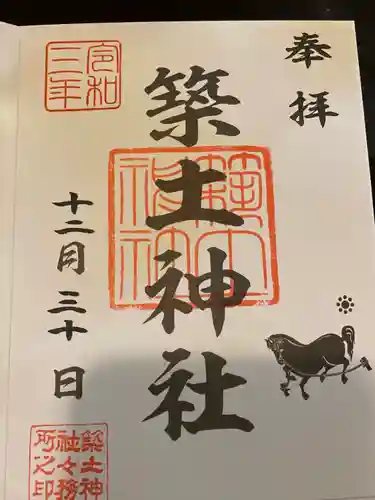 奉拝
築土神社
築土神社
令和三年
十二月三十日
築土神
社々務
所之印